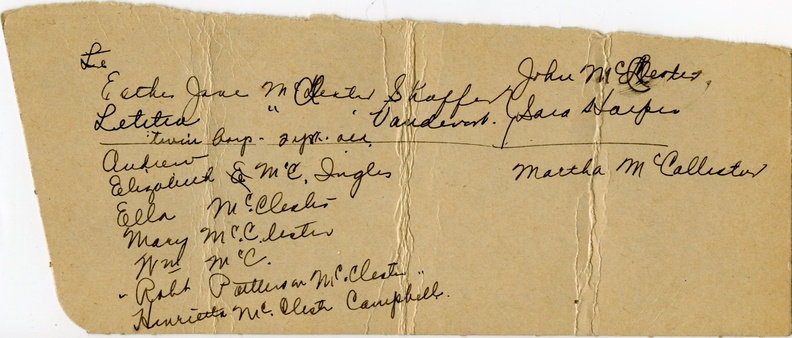 Esther Jane McClester Shaffer
Letitia " Vandevort.
twin boys - 2 yrs. old.
John McClester,
Sara Harper
Andrew
Elizabeth Mc. Ingles
Ella McClester
Mary McClester
Wm McC.
"Robt Patterson McClester"
Henrietta McClester Campbell.
Martha McCallister